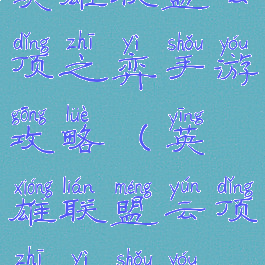 dǐng zhī yì shǒu yóu
顶之弈手游
gōng lüè yīng
攻略（英
xióng lián méng yún dǐng
雄联盟云顶
zhī yì shǒu yóu